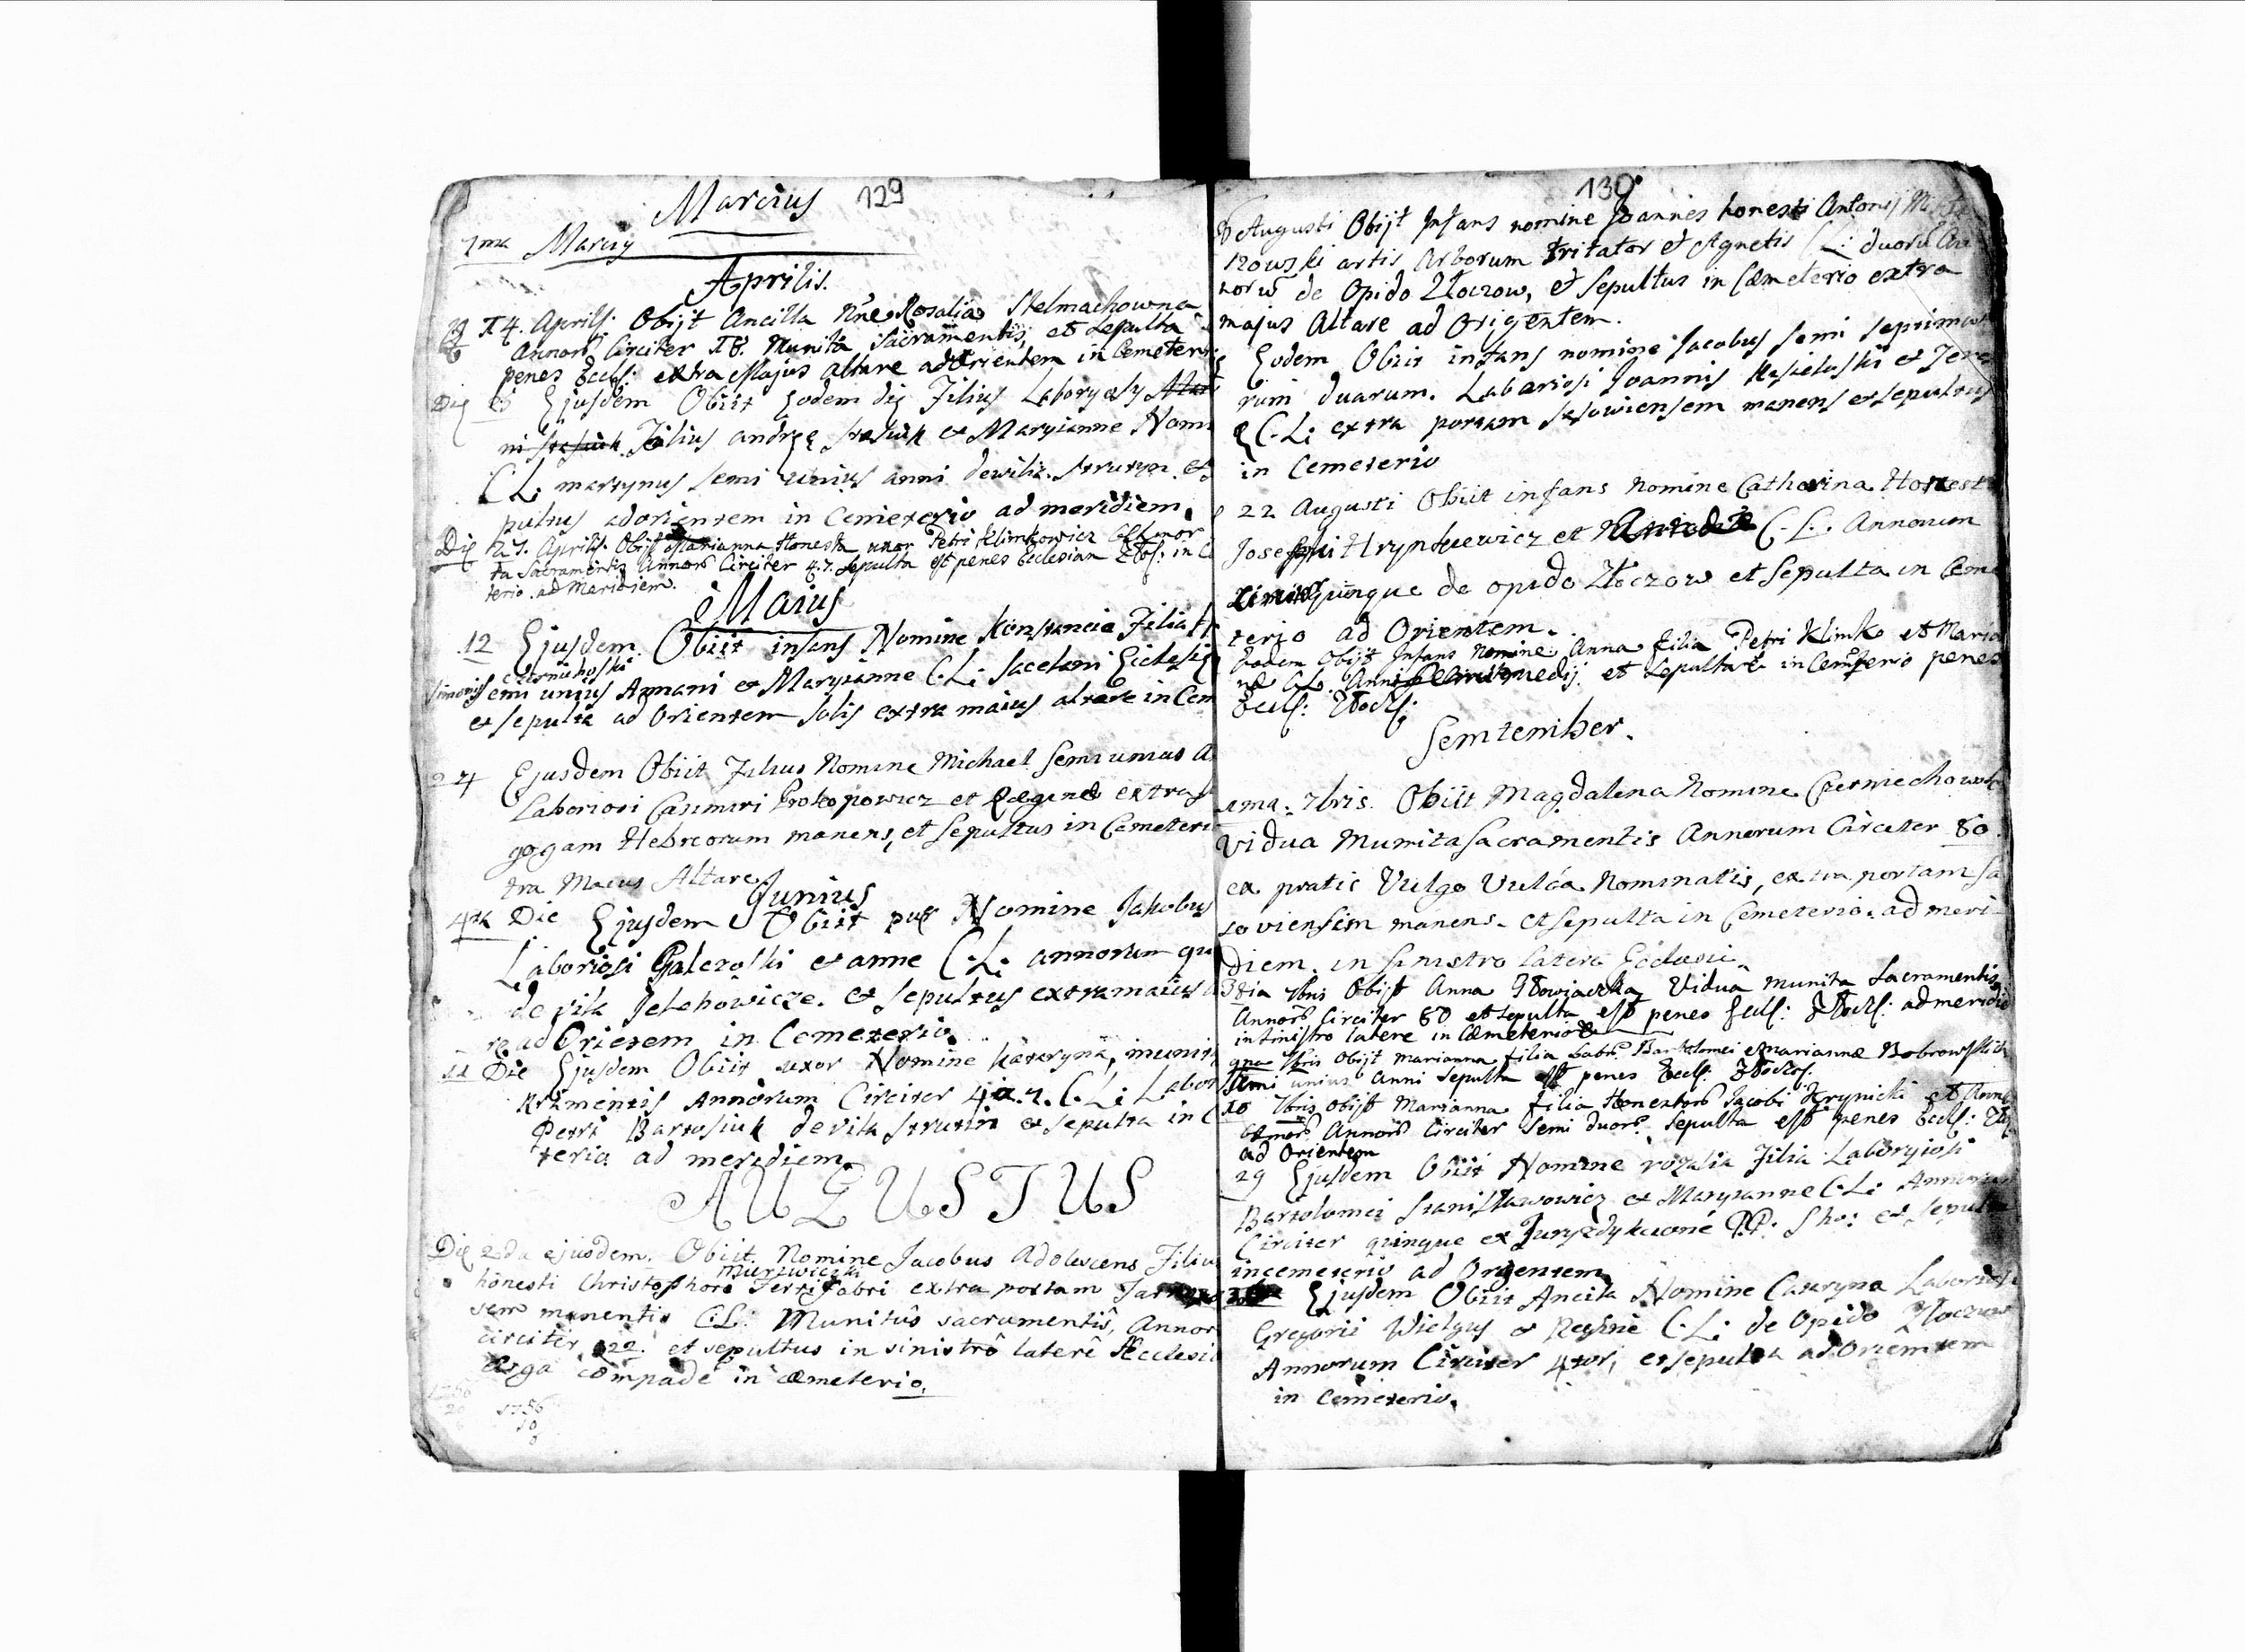 Marcius 129
1ma Marcÿ
Aprilis.
14. Aprils: Obijt Ancilla Nne Rosalia Stelmachowna
Annorũ Circiter 18. Munita Sacramentis, et Sepulta
penes Eccls: extra Majus Altare ad Orientem in Cemeterio
Die Ejusdem Obiit Eodem die Filius Laboryosy
Filius andrzę Stasiuk et Maryianne Nomi
C L: martynus semi unius anni dewilla Strutyn et
pultus ad orientem in Cemeterio ad meridiem.
Die 27. Aprils. Obijt Marianna Honesta uxor Petri Klimkowicz
ta Sacramentis Annorũ Circiter 47. Sepulta est penes Ecclesiam Zlocs: in C
terio ad Meridiem.
Maius
12 Ejusdem Obiit infans Nomine Konstancia Filia
Simonis Czernichoski
semi unius Annani et Maryianne C.L: Sacelani Ecclesię
et sepulta ad Orientem solis extra maius altare in Cem
24 Ejusdem Obiit Filius Nomine Michael Semi unius A
Laboriosi Casimiri Prokopowicz et Reginæ extra
gogam Hebreorum manens, et Sepultus in Cemeteri
tra Maius Altare
Junius
4ta Die Ejusdem Obiit puer Nomine Jakobus
Laboriosi Galczoski et anne C.L: annorum qu
de vila Jelehowicze. et sepultus extra maius
re ad Orietem in Cemeterio
11 Die Ejusdem Obiit uxor Nomine Kataryna, munit
kramentis Annorum Circiter C.L: Labor
Petri Bartosiuk de vila Strutin et sepulta in C
terio ad meridiem.
AUGUSTUS
Die 2da ejusdem. Obiit Nomine Jacobus Adolescens Filius
murzwiczki
honesti Christophori Ferrifabri extra portam
sem manentis C:L: Munitûs sacramentis, Annor
circiter 22. et sepultus in sinistrô laterê Ecclesia
erga compadê in cæmeterio.
1756
20 1756
10
0
130
8 Augusti Obijt Infans nomine Joannes honesti Antonij
rzowski artis Arborum Tritator et Agnetis C.L: duorũ An
norũ de Opido Złoczow, et Sepultus in Cæmeterio extra
majus Altare ad Origentem.
Eodem Obiit infans nomine Jacobus semi septima
rum duarum. Labariosi Joannis Kisieloski et Tere
C.L: extra portam Sasowiensem manens et sepultus
in Cemeterio
22 Augusti Obiit infans Nomine Catharina Honest
Josephi Hrynkiewicz et C.L. Annorum
quinque de opido Złoczow et Sepulta in Ceme
terio ad Orientem.
Eodem Obijt Infans Nomine Anna filia Petri Klimko et Maria
næ C.L. Anni medij et Sepulta in Cemeterio penes
Eccls: Złocs:
Semtember.
1ma 7bris. Obiit Magdalena Nomine Czerniechowska
Vidua Munita Sacramentis Annorum Circiter 80
ex pratis Vulgo Vulća Nominatis, extra portam Sa
soviensem manens. et sepulta in Cemeterio ad meri
diem. in sinistro latere Ecclesiæ.
3tia 7bris Obijt Anna Vidua munita Sacramentis
Annorũ Circiter 80 et sepulta est penes Eccls: Złocs: ad meridie
in sinistro latere in Cæmeterio
9na 7bris Obijt Marianna filia Bartolomei et Mariannæ Bobrowskich
Semi unius Anni Sepulta est penes Eccls: Złocs:
10 7bris obijt Marianna filia Honestorũ Jacobi Hrynicki et Anna
Annorũ Circiter Semi duorũ Sepulta est penes Eccls:
ad Orientem
29 Ejusdem Obiit Nomine rozalia Filia Laboryiosi
Bartolomei Stanisławowicz et Maryianne C.L: Annorum
Circiter quinque ex Juryzdykcione P.P. et sepulta
in cemeterio ad Orgentem
Ejusdem Obiit Ancila Nomine Cataryna Laboriosi
Gregorii Wielgus et Regine C.L: de Opido Złoczow
Annorum Circiter 4tor, et sepulta ad Orientem
in Cemeterio.